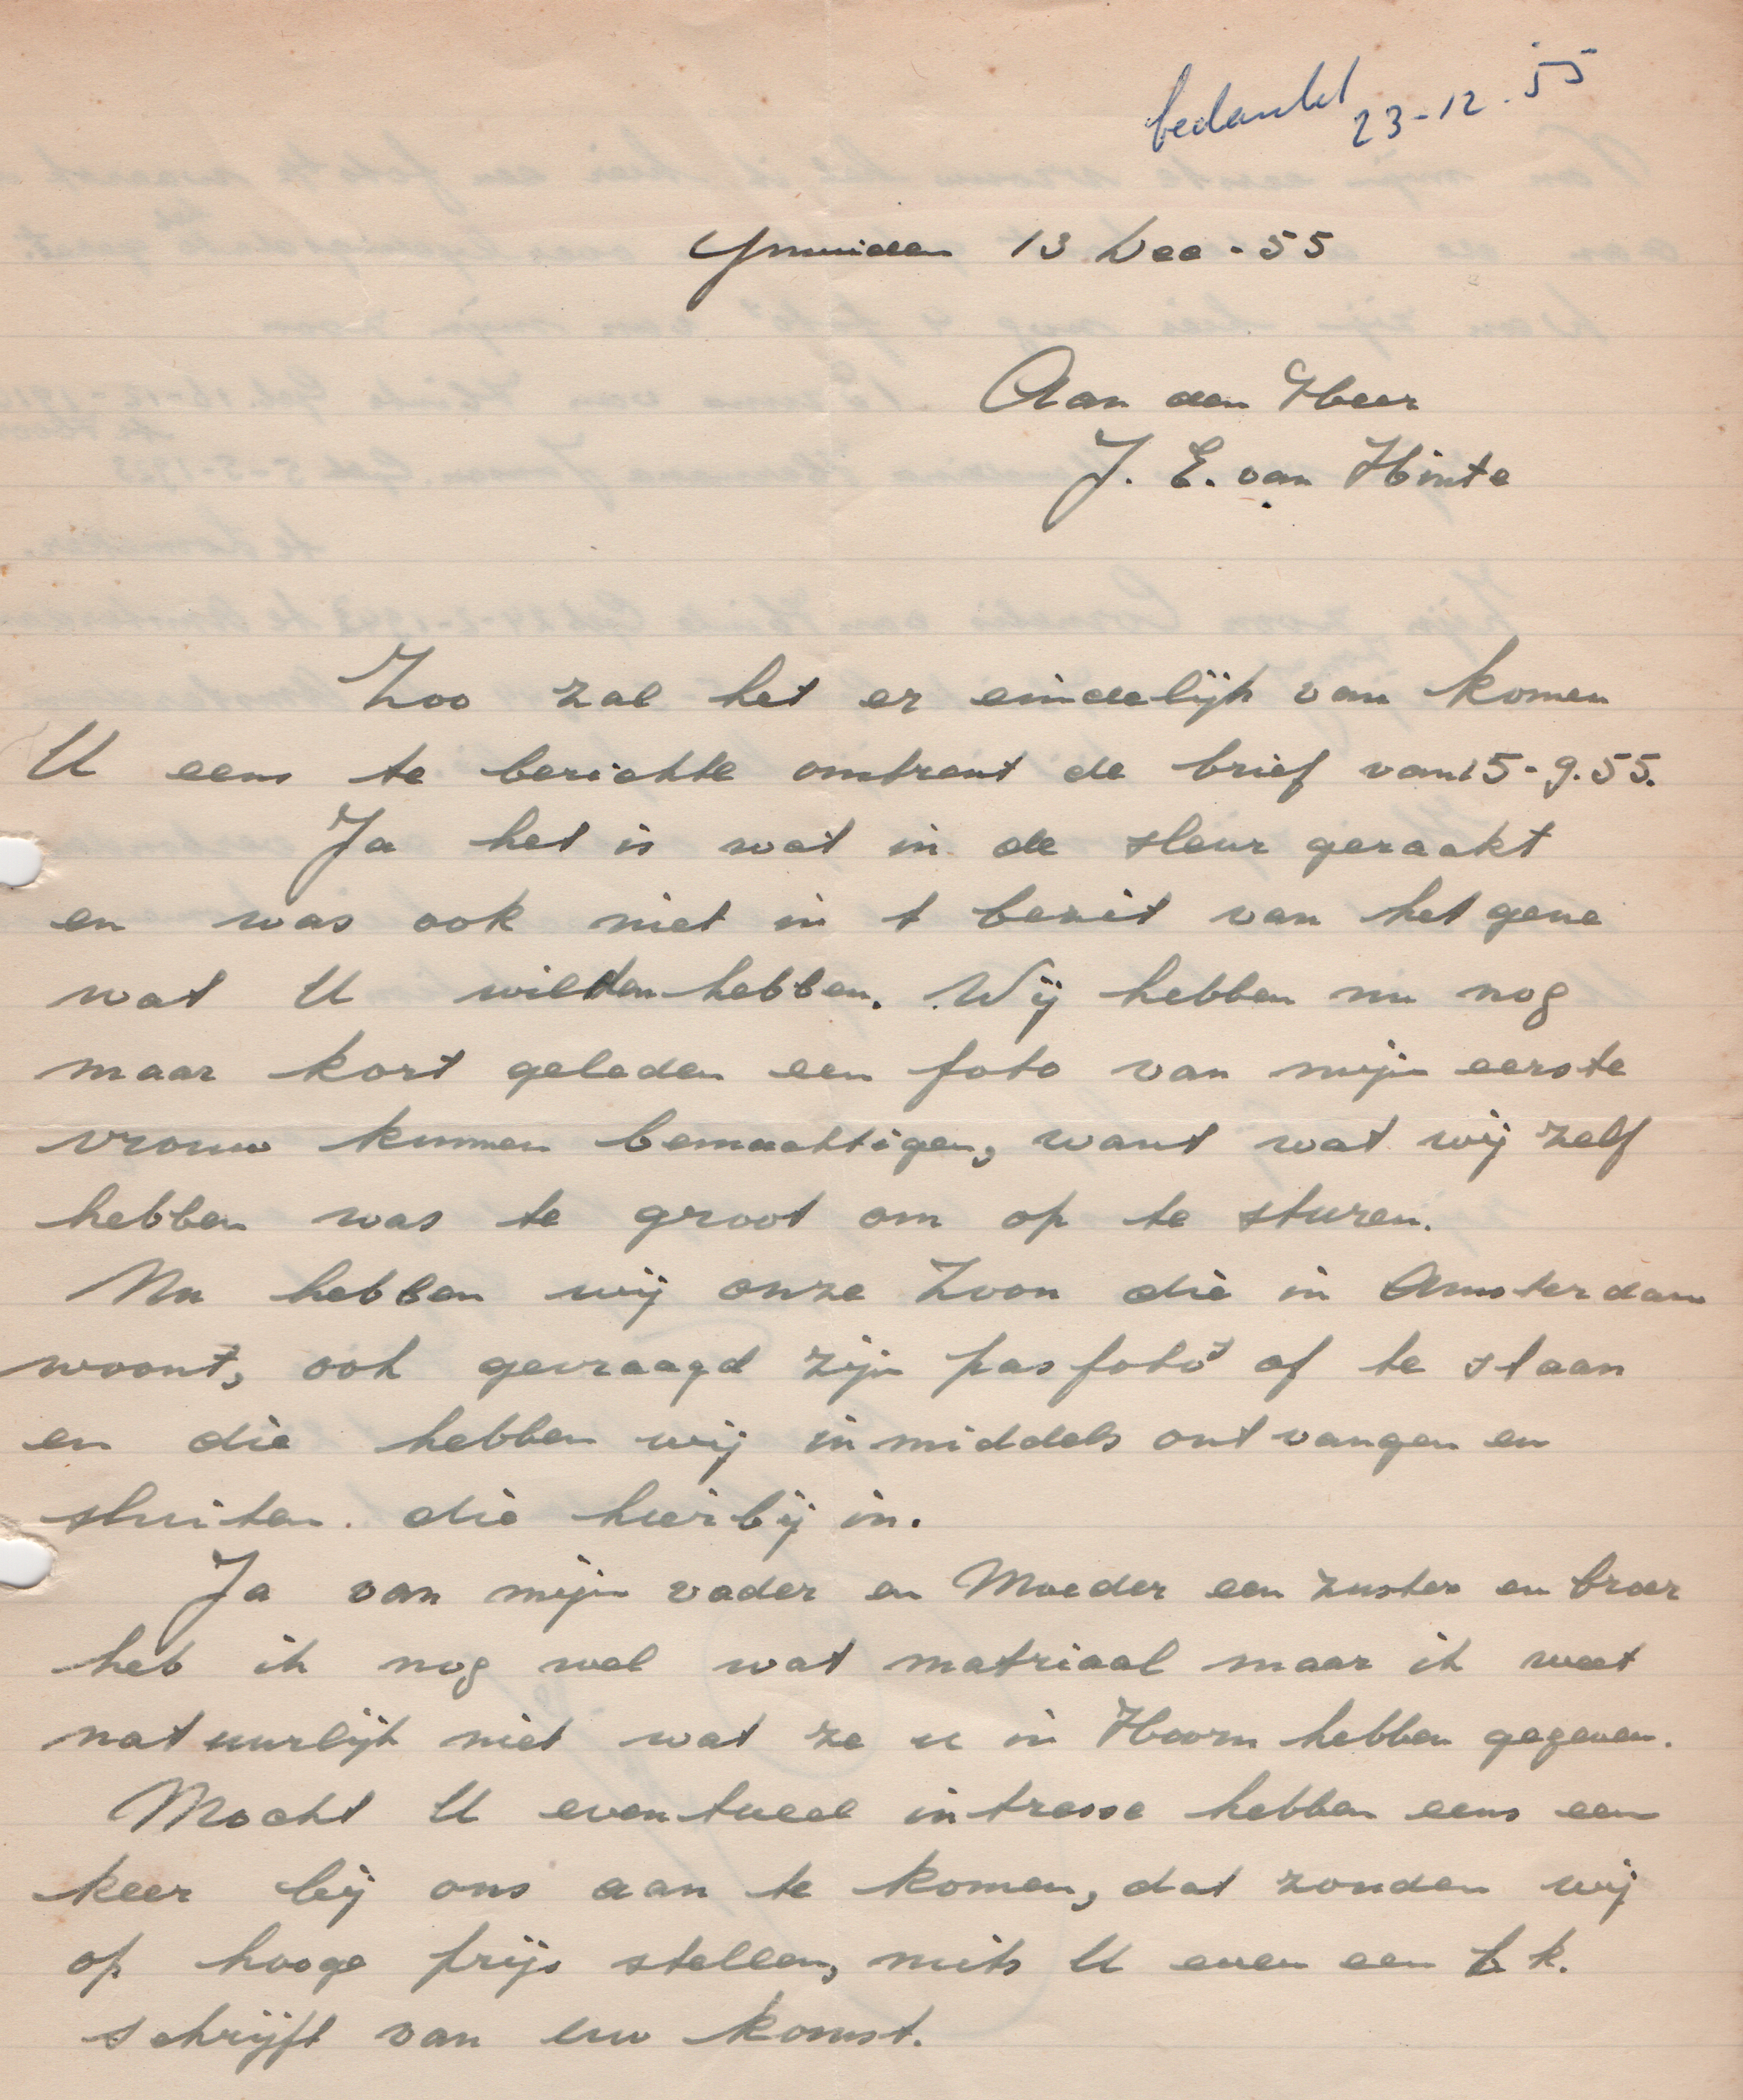 bedankt 23-12-55
Ymuiden 13 Dec-55
Aan den Heer
J. E. van Hinte
Zoo zal het er eindelijk van komen
U eens te berichte omtrent de brief van 15-9.55.
Ja het is wat in de sleur geraakt
en was ook niet in t bezit van het gene
wat U wilden hebben. Wij hebben nu nog
maar kort geleden een foto van mijn eerste
vrouw kunnen bemachtigen, want wat wij zelf
hebben was te groot om op te sturen.
Nu hebben wij onze Zoon die in Amsterdam
woont, ook gevraagd zijn pasfoto's af te staan
en die hebben wij inmiddels ontvangen en
sluiten die hierbij in.
Ja van mijn vader en Moeder een zuster en broer
heb ik nog wel wat matriaal maar ik weet
natuurlijk niet wat ze u in Hoorn hebben gegeven.
Mocht U eventueel intresse hebben eens een
keer bij ons aan te komen, dat zouden wij
op hooge prijs stellen, mits U even een b.k.
schrijft van uw komst.